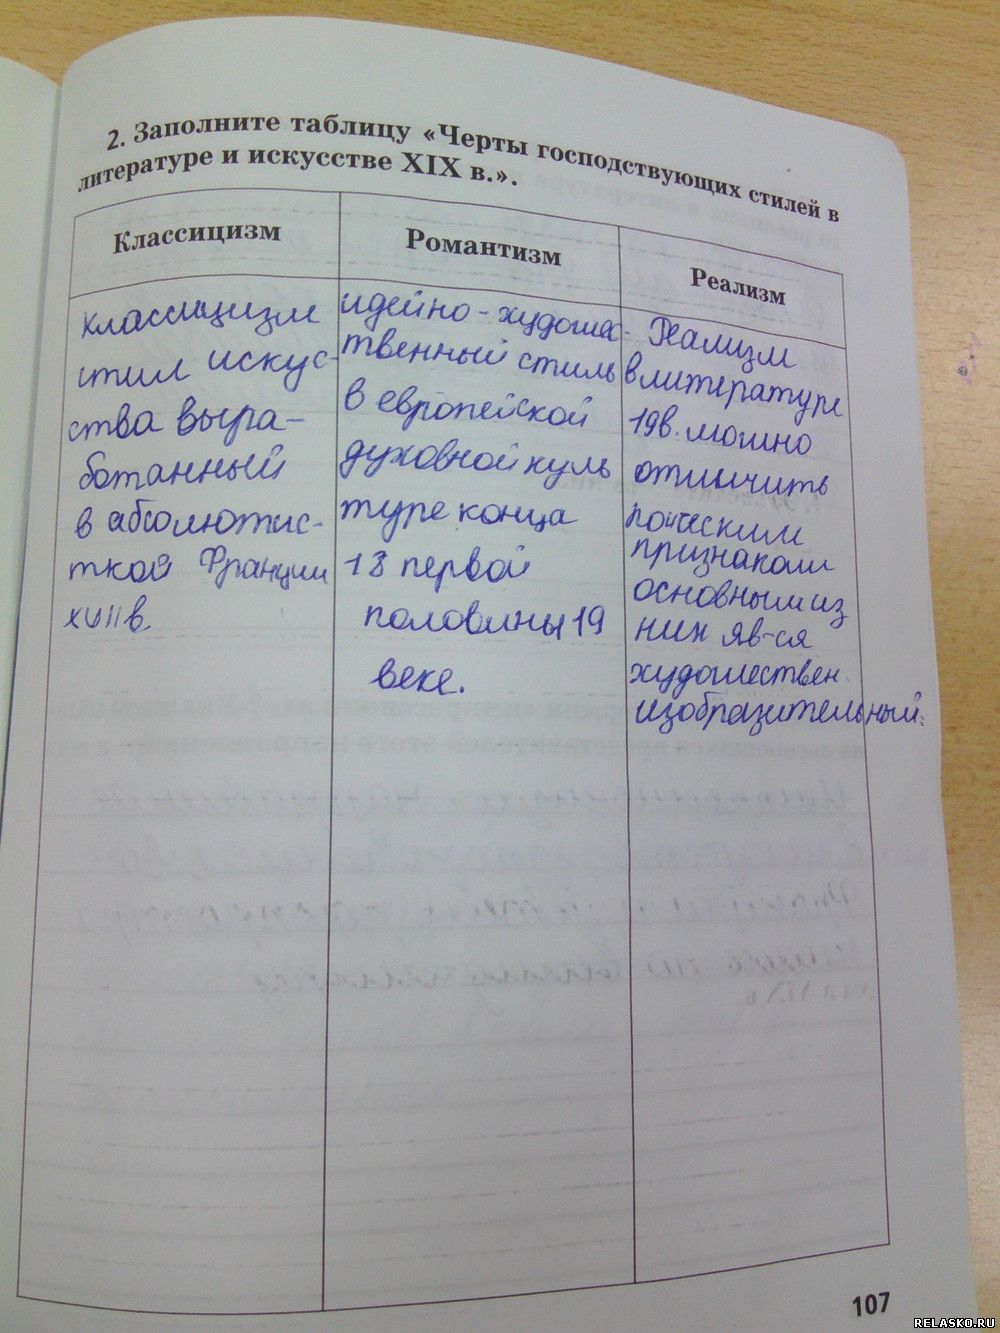 2. Заполните таблицу «Черты господствующих стилей в
литературе и искусстве XIX в.».
Классицизм
классицизм
стил искус-
ства выра-
ботанный
в абсолютис-
ткой Франции
XVII в.
Романтизм
идейно - художес-
твенный стиль
в европейской
духовной куль
туре конца
18 первой
половины 19
веке.
Реализм
Реализм
в литературе
19в. можно
отличить
признакам
основным из
них яв-ся
художествен.
изобразительный.
107
RELASKO.RU